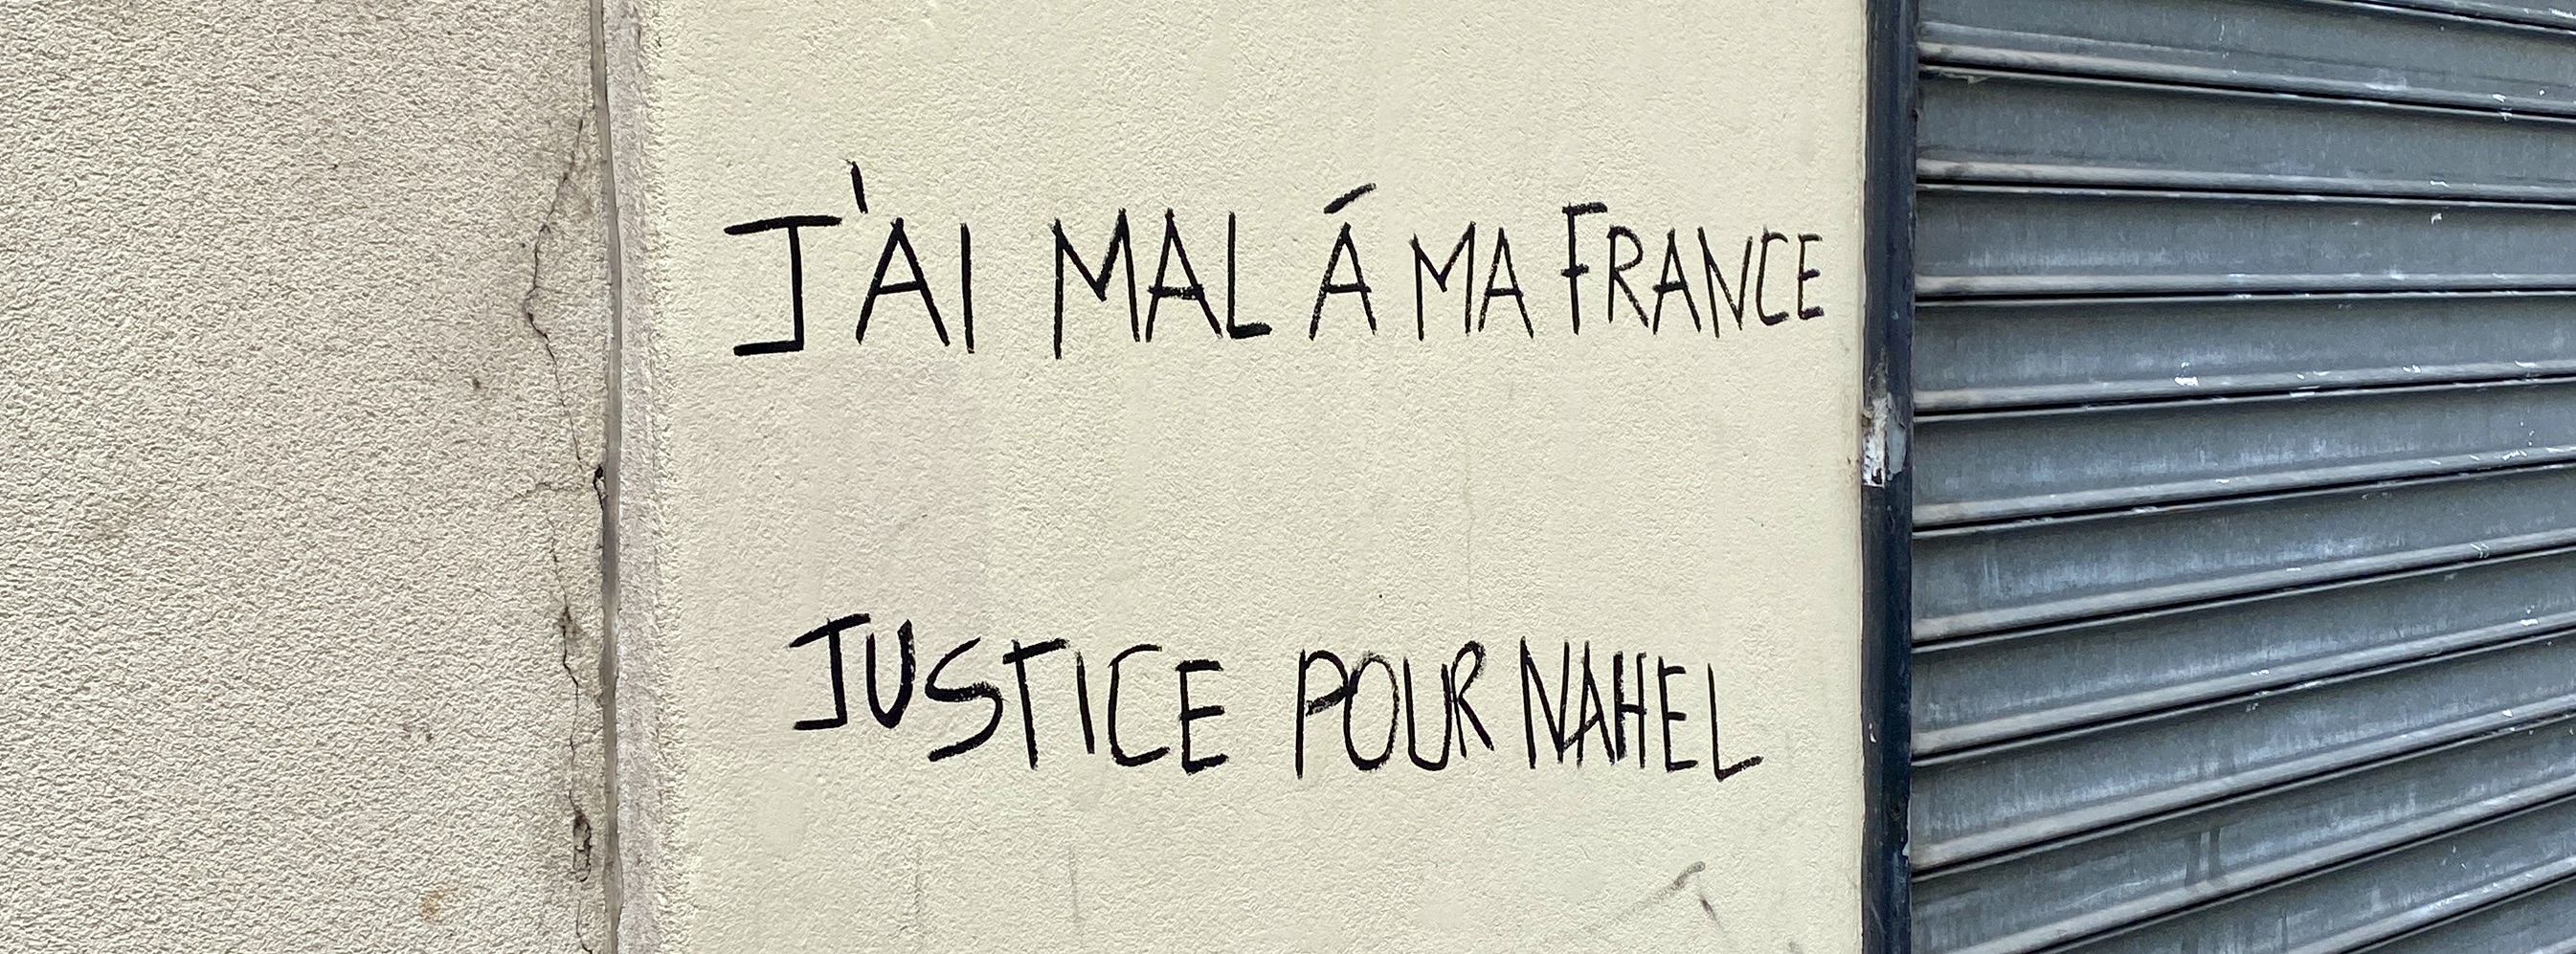 J'AI MAL Á MA FRANCE
JUSTICE POUR NAHEL